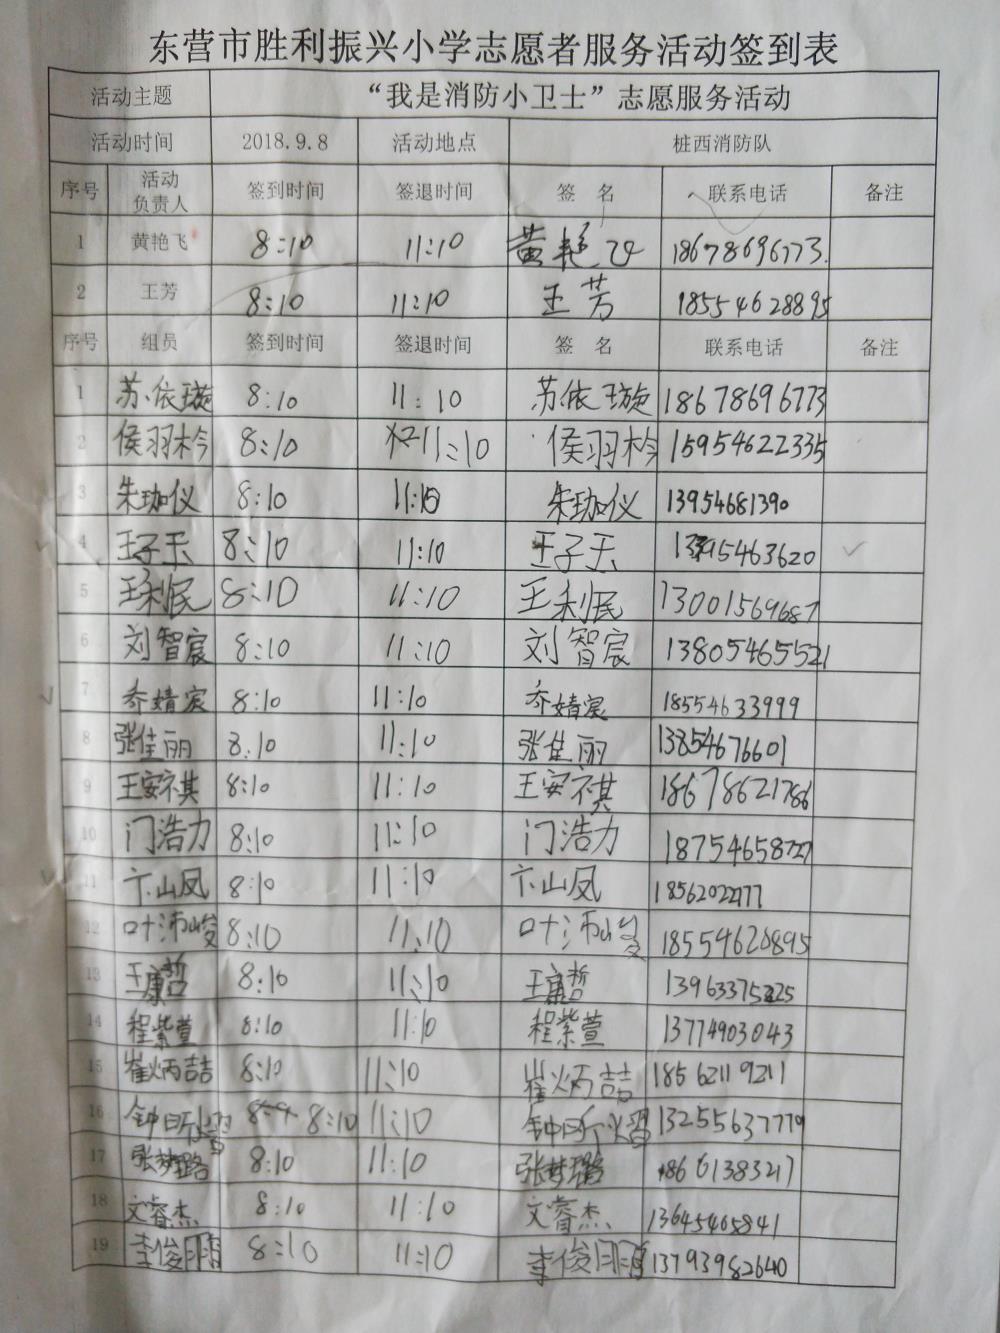 东营市胜利振兴小学志愿者服务活动签到表
活动主题 “我是消防小卫士”志愿服务活动
活动时间 2018.9.8 活动地点 桩西消防队
序号 活动负责人 签到时间 签退时间 签 名 联系电话 备注
1 黄艳飞 8:10 11:10 黄艳飞 18678696773.
2 王芳 8:10 11:10 王芳 18554628895
序号 组员 签到时间 签退时间 签 名 联系电话 备注
1 苏依璇 8:10 11:10 苏依璇 18678696773
2 侯羽枔 8:10 11:10 侯羽枔 15954622335
3 朱珈仪 8:10 11:10 朱珈仪 13954681390
4 王子玉 8:10 11:10 王子玉
5 王利民 8:10 11:10 王利民 13001569687
6 刘智宸 8:10 11:10 刘智宸 13805465521
7 乔婧宸 8:10 11:10 乔婧宸 18554633999
8 张佳丽 8:10 11:10 张佳丽 13854676601
9 王安祺 8:10 11:10 王安祺 18678621786
10 门浩力 8:10 11:10 门浩力 18754658727
11 卞山凤 8:10 11:10 卞山凤 18562022177
12 叶沛峻 8:10 11:10 叶沛峻 18554628895
13 王康哲 8:10 11:10 王康哲 13963375225
14 程紫萱 8:10 11:10 程紫萱 13774903043
15 崔炳喆 8:10 11:10 崔炳喆 18562119211
16 钟昕熠 8:10 11:10 钟昕熠 13255637779
17 张梦璐 8:10 11:10 张梦璐 18661383217
18 文睿杰 8:10 11:10 文睿杰 13645465841
19 李俊 8:10 11:10 李俊 13793982640